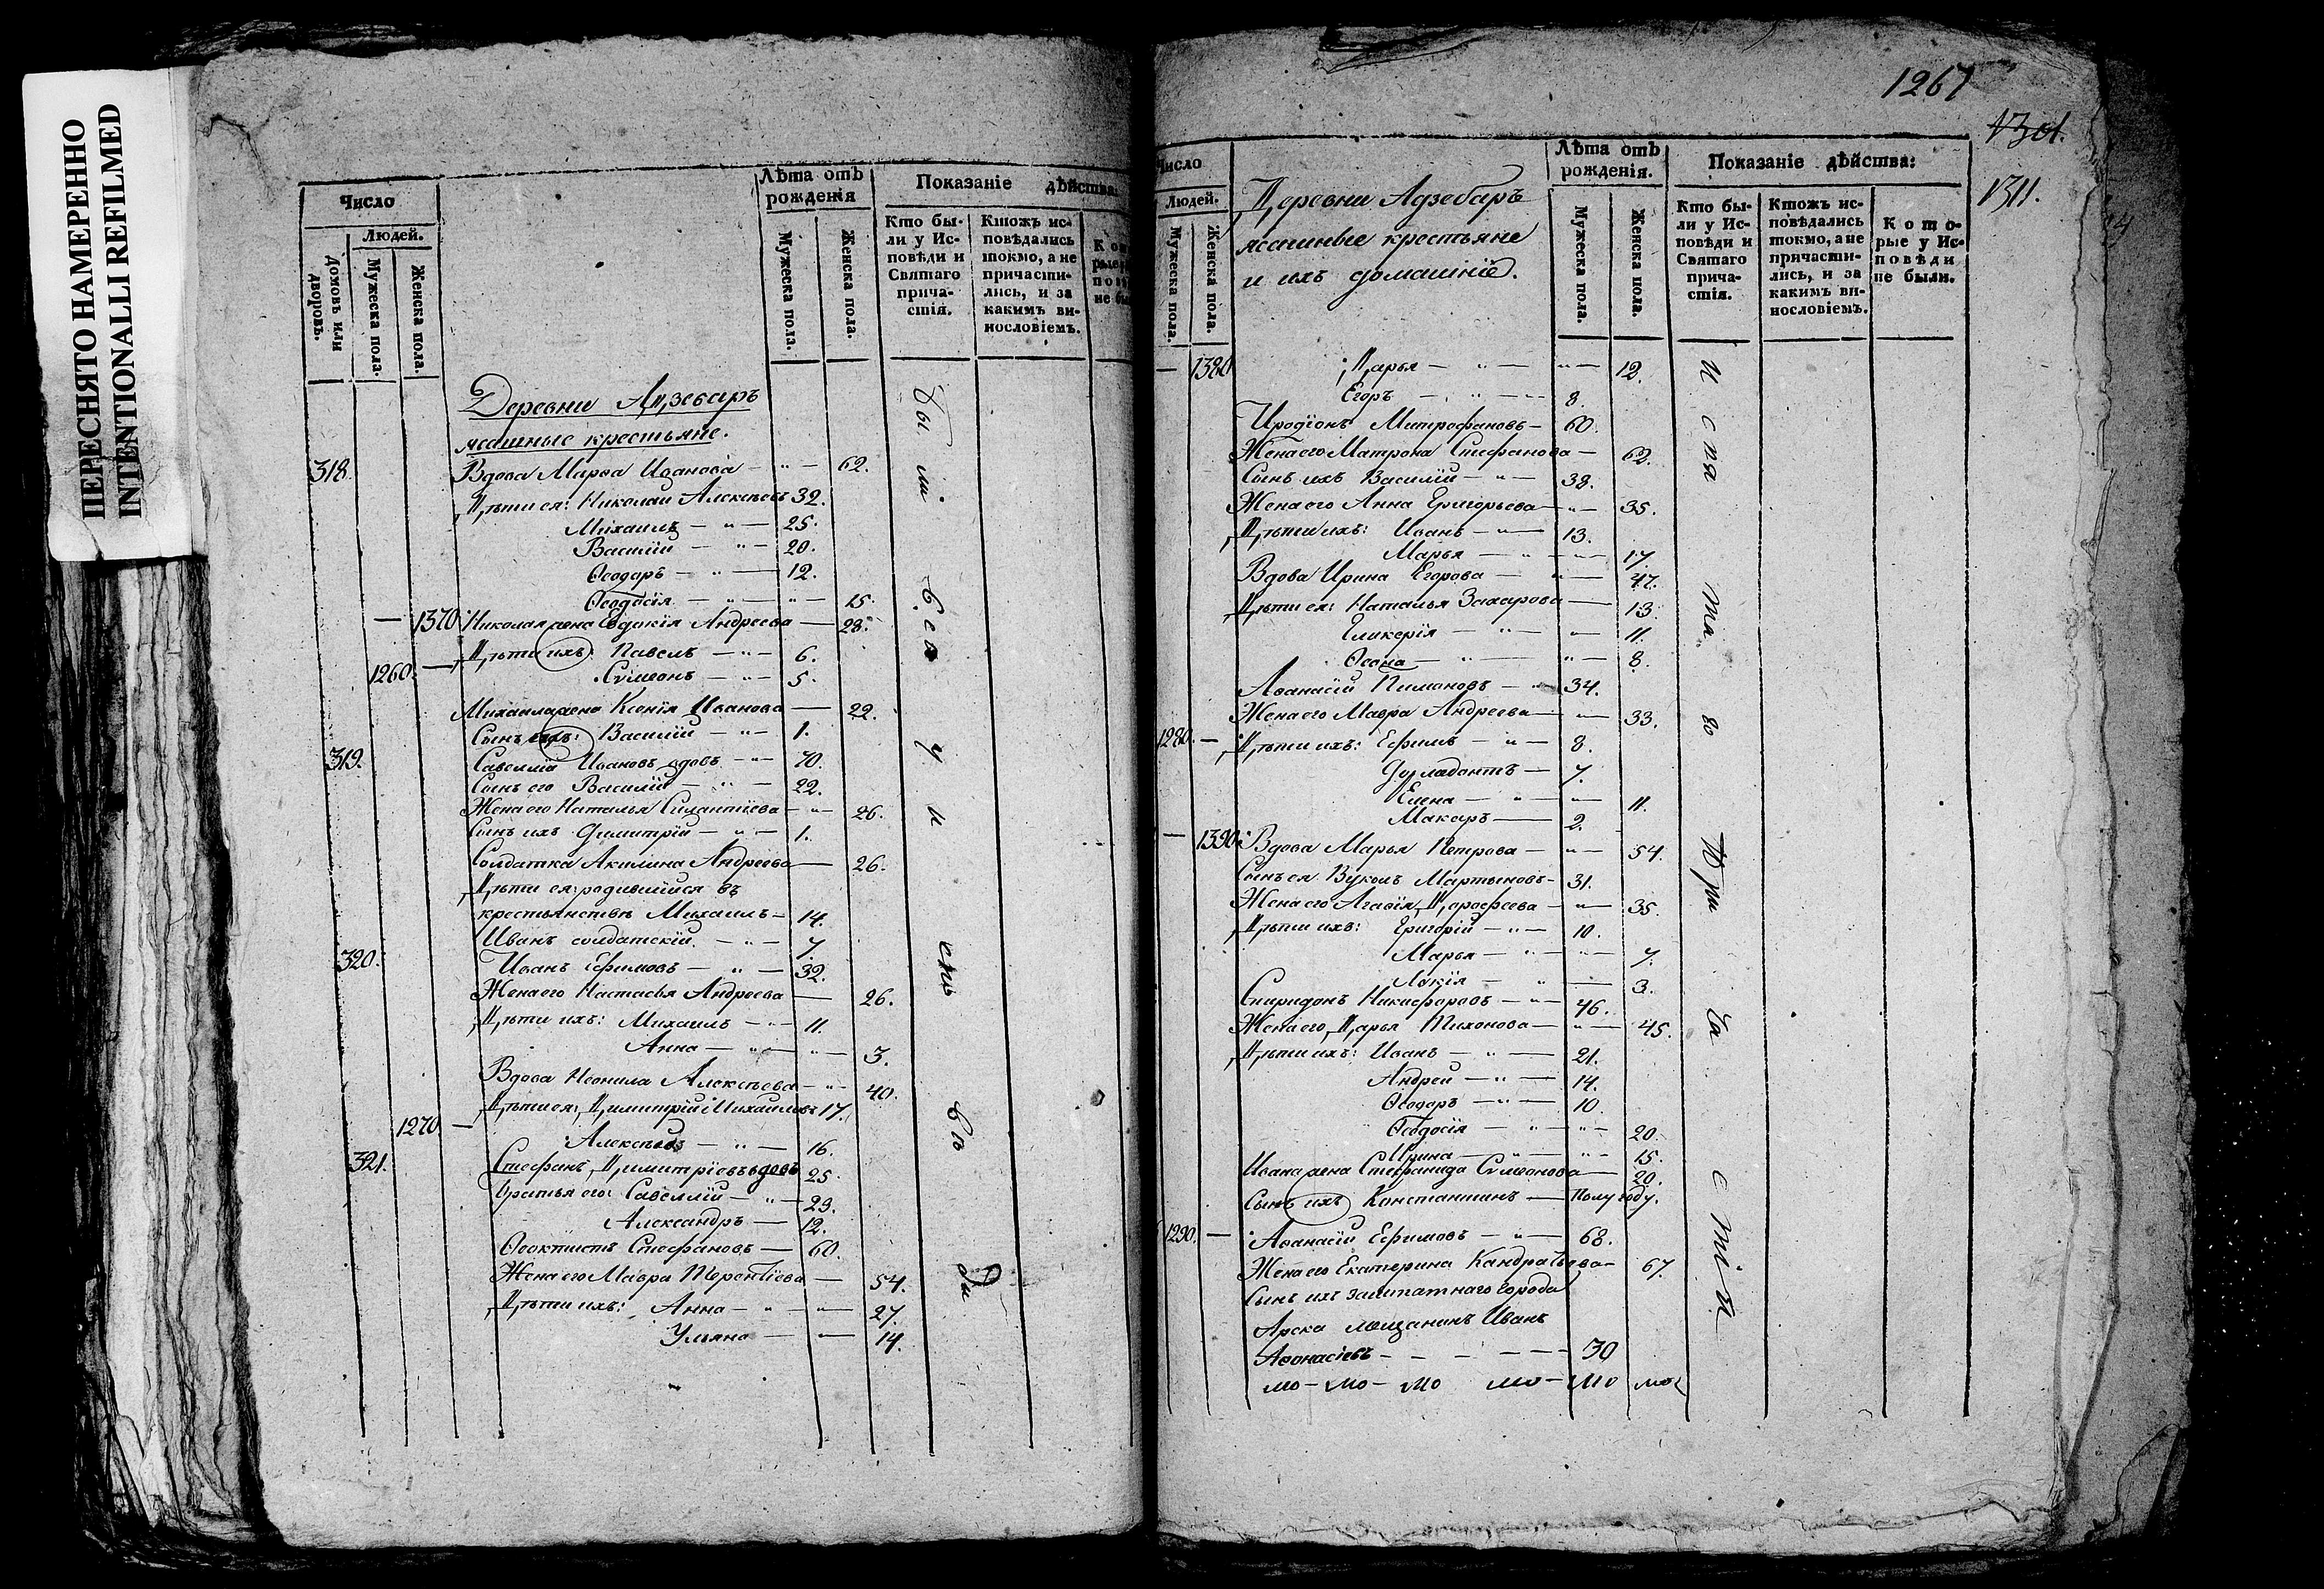 ПЕРЕСНЯТО НАМЕРЕННО
INTENTIONALLI REFILMED
Число
Людей.
Домовъ или дворовъ.
Мужеска пола.
Женска пола.
Лѣта отъ рожденія
Мужеска пола.
Женска пола.
Показаніе дѣйства:
Кто были у Исповѣди и Святаго причастія.
Ктожъ исповѣдались токмо, а не причастились, и за какимъ винословіемъ.
Деревни Адзебаръ
ясашные крестьяне.
318. Вдова Марѳа Иванова — 62.
Дѣти ея: Николай Алексѣевъ 32.
Михаилъ — 25.
Василій — 20.
Ѳеодоръ — 12.
Ѳеодосія — 15.
— 1370 Николая жена Евдокія Андреева — 28.
Дѣти ихъ: Павелъ — 6.
1260. — Сѵмеонъ — 5.
Михаила жена Ксенія Иванова — 22.
Сынъ ихъ: Василій — 1.
319. Савеллій Ивановъ вдовъ — 70.
Сынъ его Василій — 22.
Жена его Наталья Силантіева — 26.
Сынъ ихъ Димитрій — 1.
Солдатка Акилина Андреева — 26.
Дѣти ея: родившійся въ
крестьянствѣ Михаилъ — 14.
Иванъ солдатскій. — 7.
320. Иванъ Ефимовъ — 32.
Жена его Настасья Андреева — 26.
Дѣти ихъ: Михаилъ — 11.
Анна — 3.
Вдова Неонила Алексѣева — 40.
Дѣти ея: Димитрій Михаиловъ 17.
1270 —
Алексѣй — 16.
321. Стефанъ Димитріевъ вдовъ 25.
Братья его: Савеллій — 23.
Александръ — 12.
Ѳеоктистъ Стефановъ — 60.
Жена его Мавра Терентіева — 54.
Дѣти ихъ: Анна — 27.
Ульяна — 14.
бы ли
1267
1301.
1311.
Число
Людей.
Мужеска пола.
Женска пола.
Деревни Адзебаръ
ясашные крестьяне
и ихъ домашніе.
Лѣта отъ рожденія.
Мужеска пола.
Женска пола.
Показаніе дѣйства:
Кто были у Исповѣди и Святаго причастія.
Ктожъ исповѣдались токмо, а не причастились, и за какимъ винословіемъ.
Которые у Исповѣди не были.
— 1380 Дарья — 12.
Егоръ — 8.
Иродіонъ Митрофановъ — 60.
Жена его Матрона Стефанова — 62.
Сынъ ихъ Василій — 38.
Жена его Анна Григорьева — 35.
Дѣти ихъ: Иванъ — 13.
Марья — 17.
Вдова Ирина Егорова — 47.
Дѣти ея: Наталья Захарова — 13.
Гликерія — 11.
8.
Аѳанасій Пимоновъ — 34.
Жена его Мавра Андреева — 33.
1280. — Дѣти ихъ: Ефимъ — 8.
7.
Елена — 11.
Макаръ — 2.
— 1390. Вдова Марья Петрова — 54.
Сынъ ея Вуколъ Мартыновъ — 31.
Жена его Агаѳія Дорофеева — 35.
Дѣти ихъ: Григорій — 10.
Марья — 7.
3.
Спиридонъ Никифоровъ — 46.
Жена его Дарья Тихонова — 45.
Дѣти ихъ: Иванъ — 21.
Андрей — 14.
Ѳеодоръ — 10.
Ѳеодосія — 20.
Ирина — 15.
Ивана жена Стефанида Сѵмеонова — 20.
Сынъ ихъ Константинъ — Полугоду.
1290. — Аѳанасій Ефимовъ — 68.
Жена его Екатерина Кандратьева — 67.
Сынъ ихъ заштатнаго города
Арска мещанинъ Иванъ
Аѳонасіевъ — 30